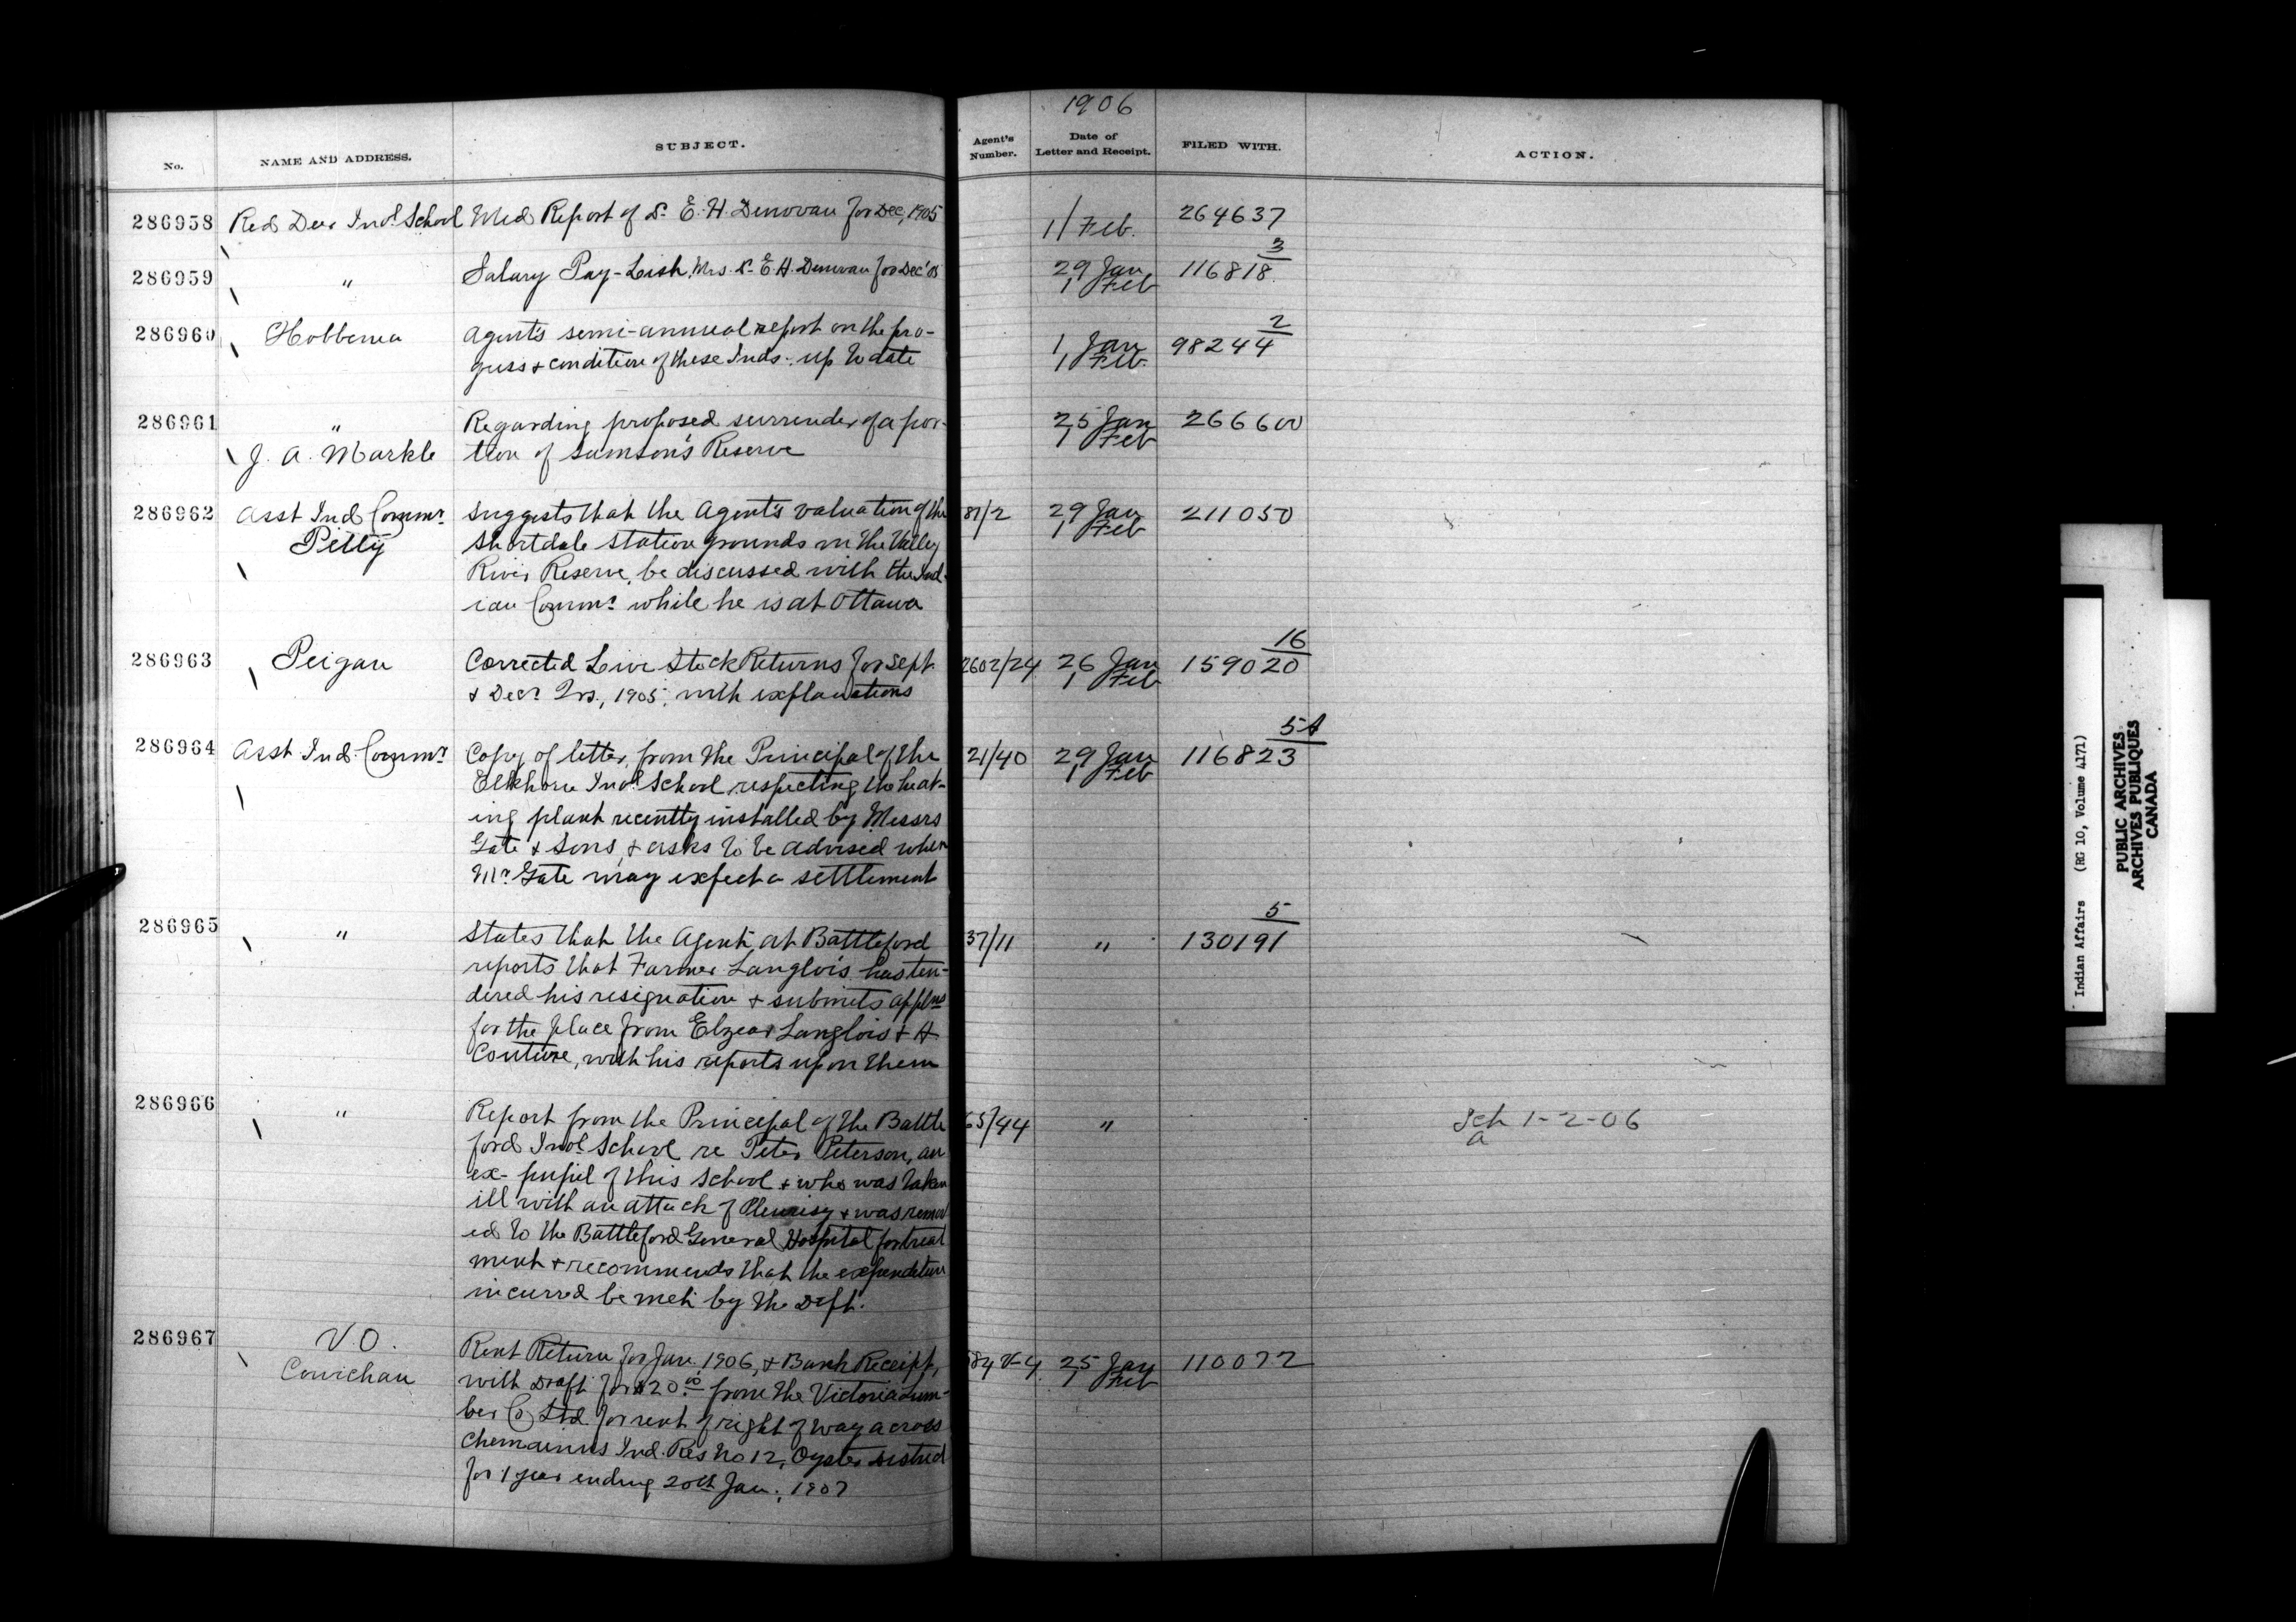 1906
No.
NAME AND ADDRESS.
SUBJECT.
Agent's Number.
Date of Letter and Receipt.
FILED WITH.
ACTION.
286958 Red Deer Indl School Med Report of Dr E. H. Donovan for Dec, 1905 1/ Feb. 264637
286959 " Salary Pay-Lish, Mrs. Dr E. H. Donovan for Dec '05 29 Jan 116818/3
1 Feb
286960 Hobbema Agent's semi-annual report on the pro- 1 Jan 98244/2
gress & condition of these Inds. up to date 1 Feb.
286961 " Regarding proposed surrender of a por- 25 Jan 266600
J. A. Markle tion of Samson's Reserve 1 Feb
286962 Asst Ind Commr. Suggests that the Agent's valuation of the 81/2 29 Jan 211050
Pelly Shortdale station grounds on the Valley 1 Feb
River Reserve, be discussed with the Ind-
ian Commr. while he is at Ottawa
286963 Peigan Corrected Live Stock Returns for Sept. 2602/24 26 Jan 159020/16
& Decr Qrs., 1905, with explanations 1 Feb
286964 Asst Ind. Commr Copy of letter, from the Principal of the 21/40 29 Jan 116823/5A
Elkhorn Indl School respecting the heat- 1 Feb
ing plant recently installed by Messrs
Gate & Sons, & asks to be advised when
Mr. Gate may expect a settlement
286965 " States that the Agent at Battleford 37/11 " 130191/5
reports that Farmer Langlois has ten-
dered his resignation & submits applns
for the place from Elzear Langlois & A
Couture, with his reports upon them
286966 " Report from the Principal of the Battle 65/44 " Sch 1-2-06
ford Indl School re Peter Peterson, an a
ex-pupil of this School & who was taken
ill with an attack of Pleurisy & was remov
ed to the Battleford General Hospital for treat
ment & recommends that the expenditure
incurred be met by the Dept.
286967 V.O. Rent Return for Jan. 1906, & Bank Receipt, 584 V-4 25 Jan 110072
Cowichan with Draft for $20.00 from the Victoria Lum- 1 Feb
ber Co Ltd for rent of right of way across
Chemainus Ind. Res No 12, Oyster District
for 1 year ending 20th Jan., 1907
Indian Affairs (RG 10, Volume 4171)
PUBLIC ARCHIVES
ARCHIVES PUBLIQUES
CANADA